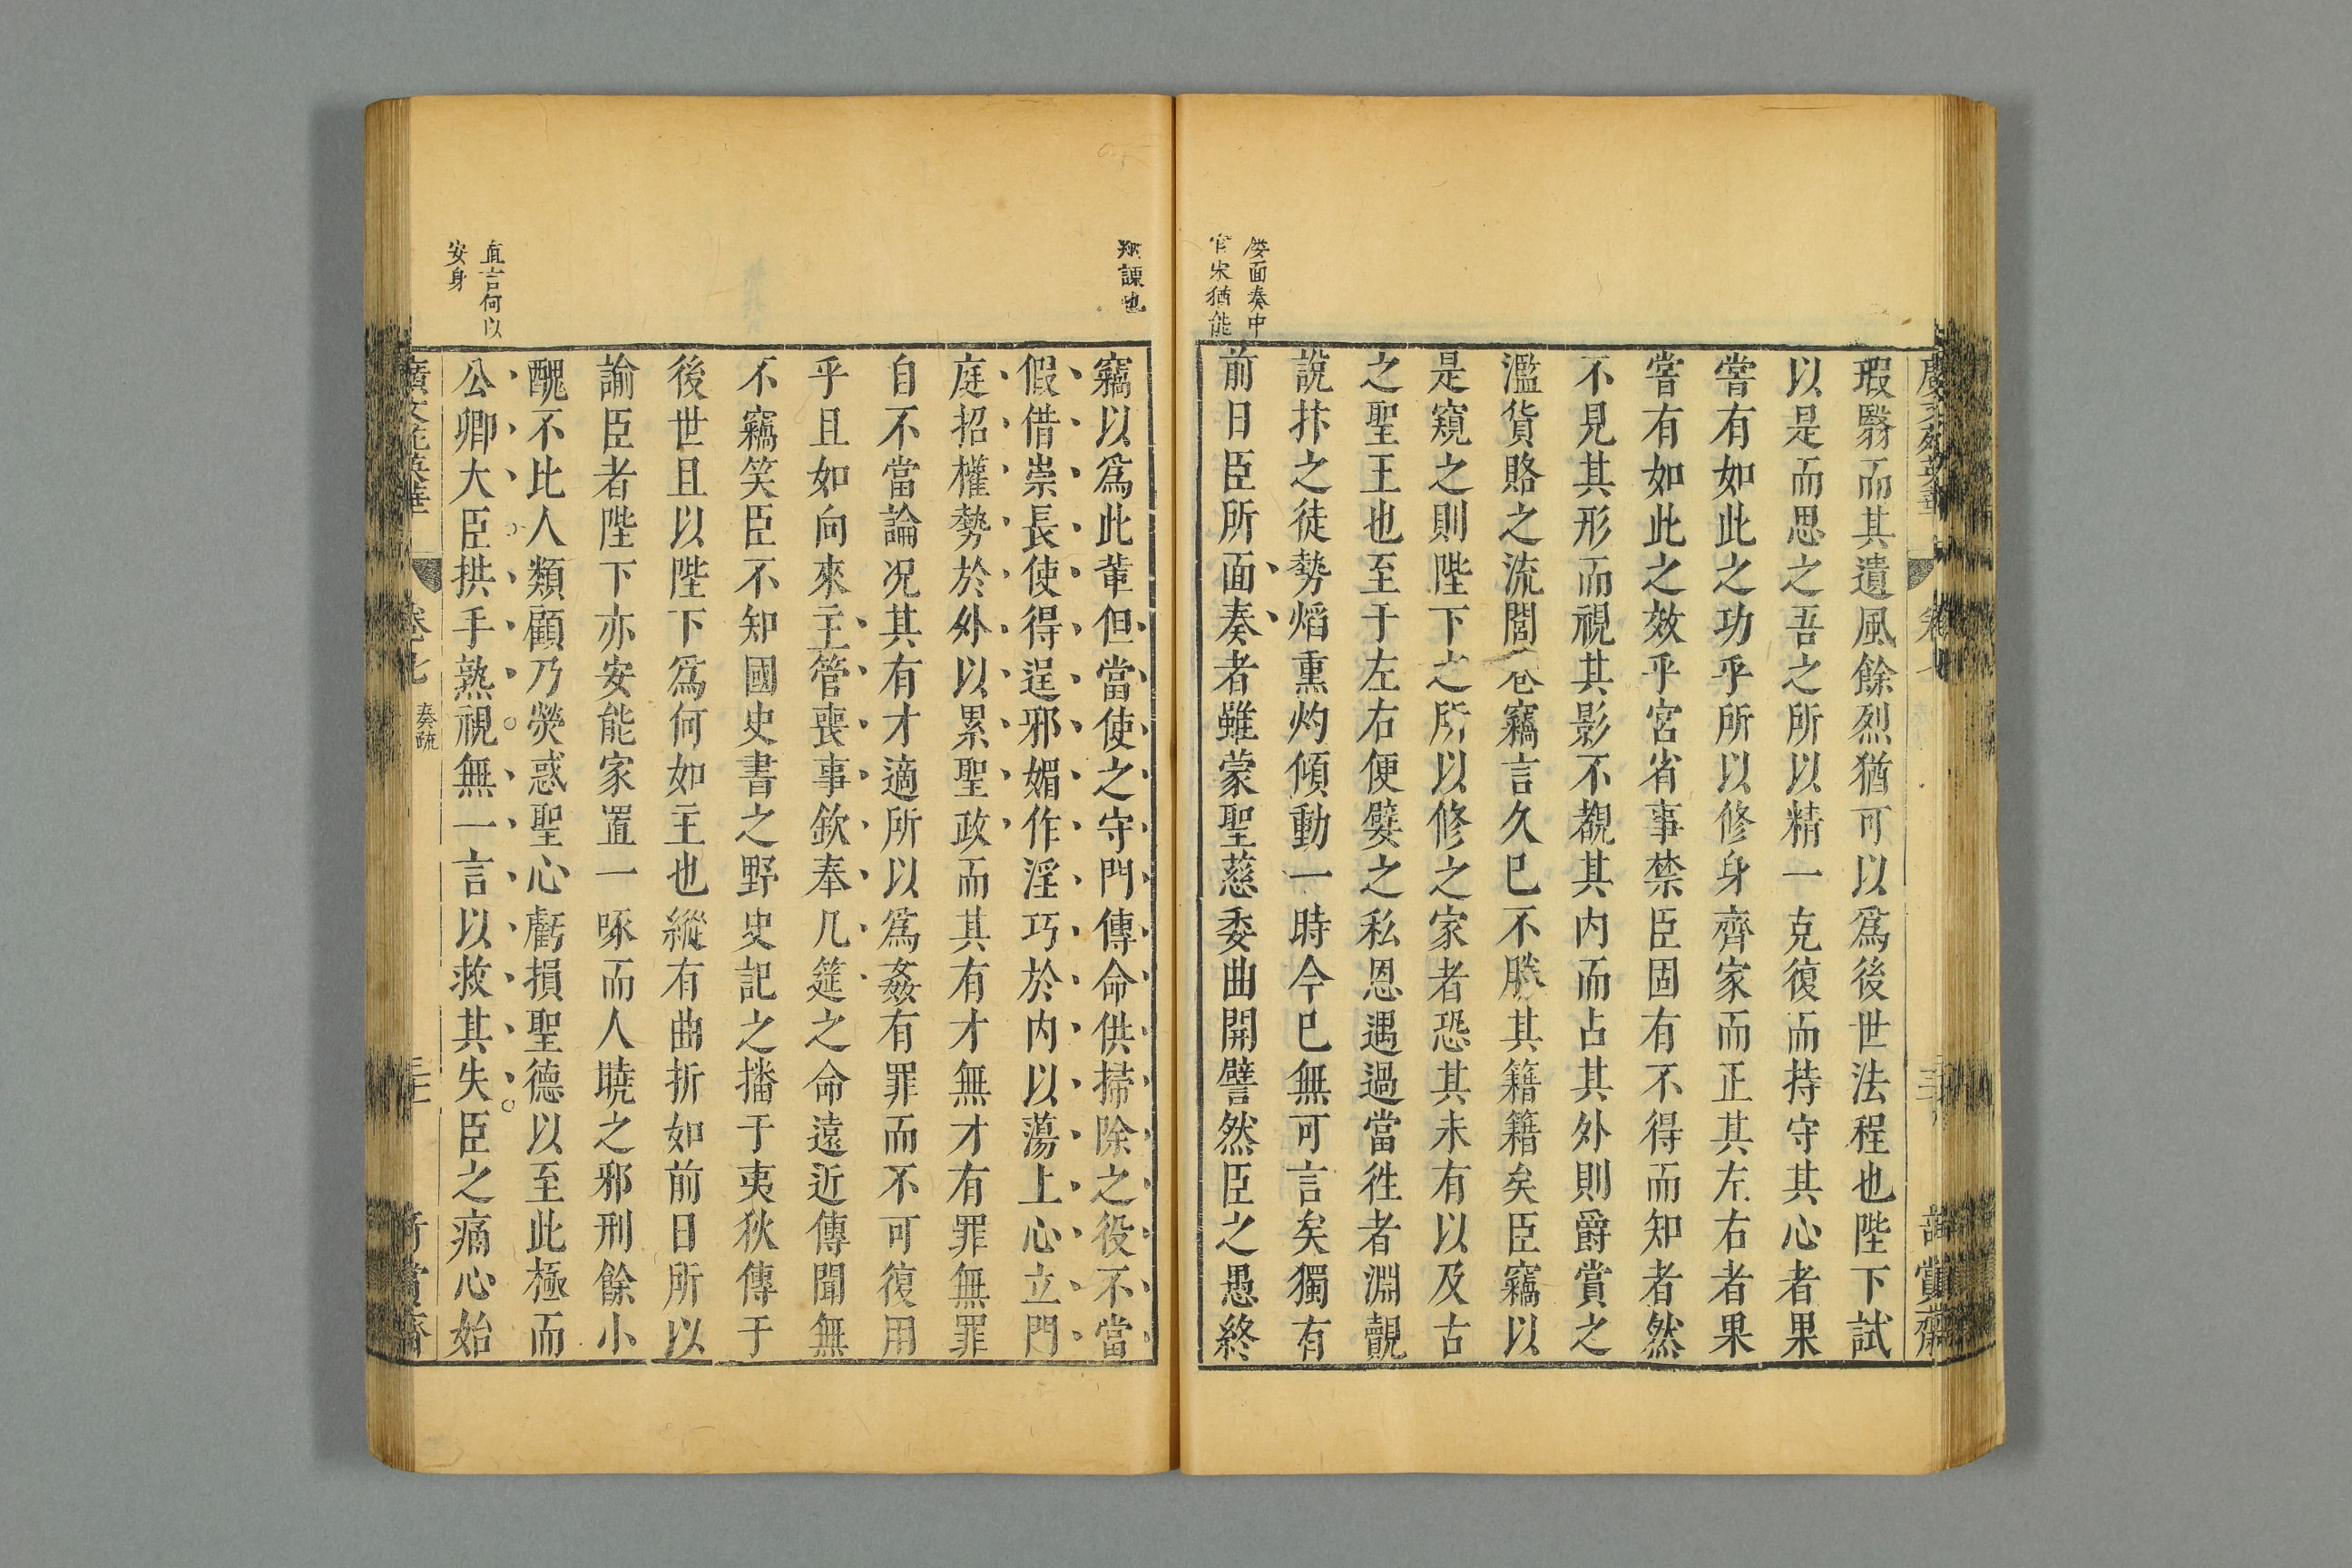 瑕翳而其遺風餘烈猶可以爲後世法程也陛下試
以是而思之吾之所以精一克復而持守其心者果
嘗有如此之功乎所以修身齊家而正其左右者果
嘗有如此之效乎宮省事禁臣固有不得而知者然
不見其形而視其影不覩其内而占其外則爵賞之
濫貨賂之流閭巷竊言久已不勝其籍籍矣臣竊以
是窺之則陛下之所以修之家者恐其未有以及古
之聖王也至于左右便嬖之私恩遇過當徃者淵覿
說抃之徒勢熖熏灼傾動一時今已無可言矣獨有
前日臣所面奏者雖蒙聖慈委曲開譬然臣之愚終
屢面奏中
官宋猶能
竊以爲此輩但當使之守門傳命供掃除之役不當
假借崇長使得逞邪媚作淫巧於内以蕩上心立門
庭招權勢於外以累聖政而其有才無才有罪無罪
自不當論况其有才適所以爲姦有罪而不可復用
乎且如向來主管喪事欽奉几筵之命遠近傳聞無
不竊笑臣不知國史書之野史記之播于夷狄傳于
後世且以陛下爲何如主也縱有曲折如前日所以
諭臣者陛下亦安能家置一喙而人曉之邪刑餘小
醜不比人類顧乃熒惑聖心虧損聖德以至此極而
公卿大臣拱手熟視無一言以救其失臣之痛心始
直言何以
安身
廣文苑英華
卷七
奏疏
賞齋